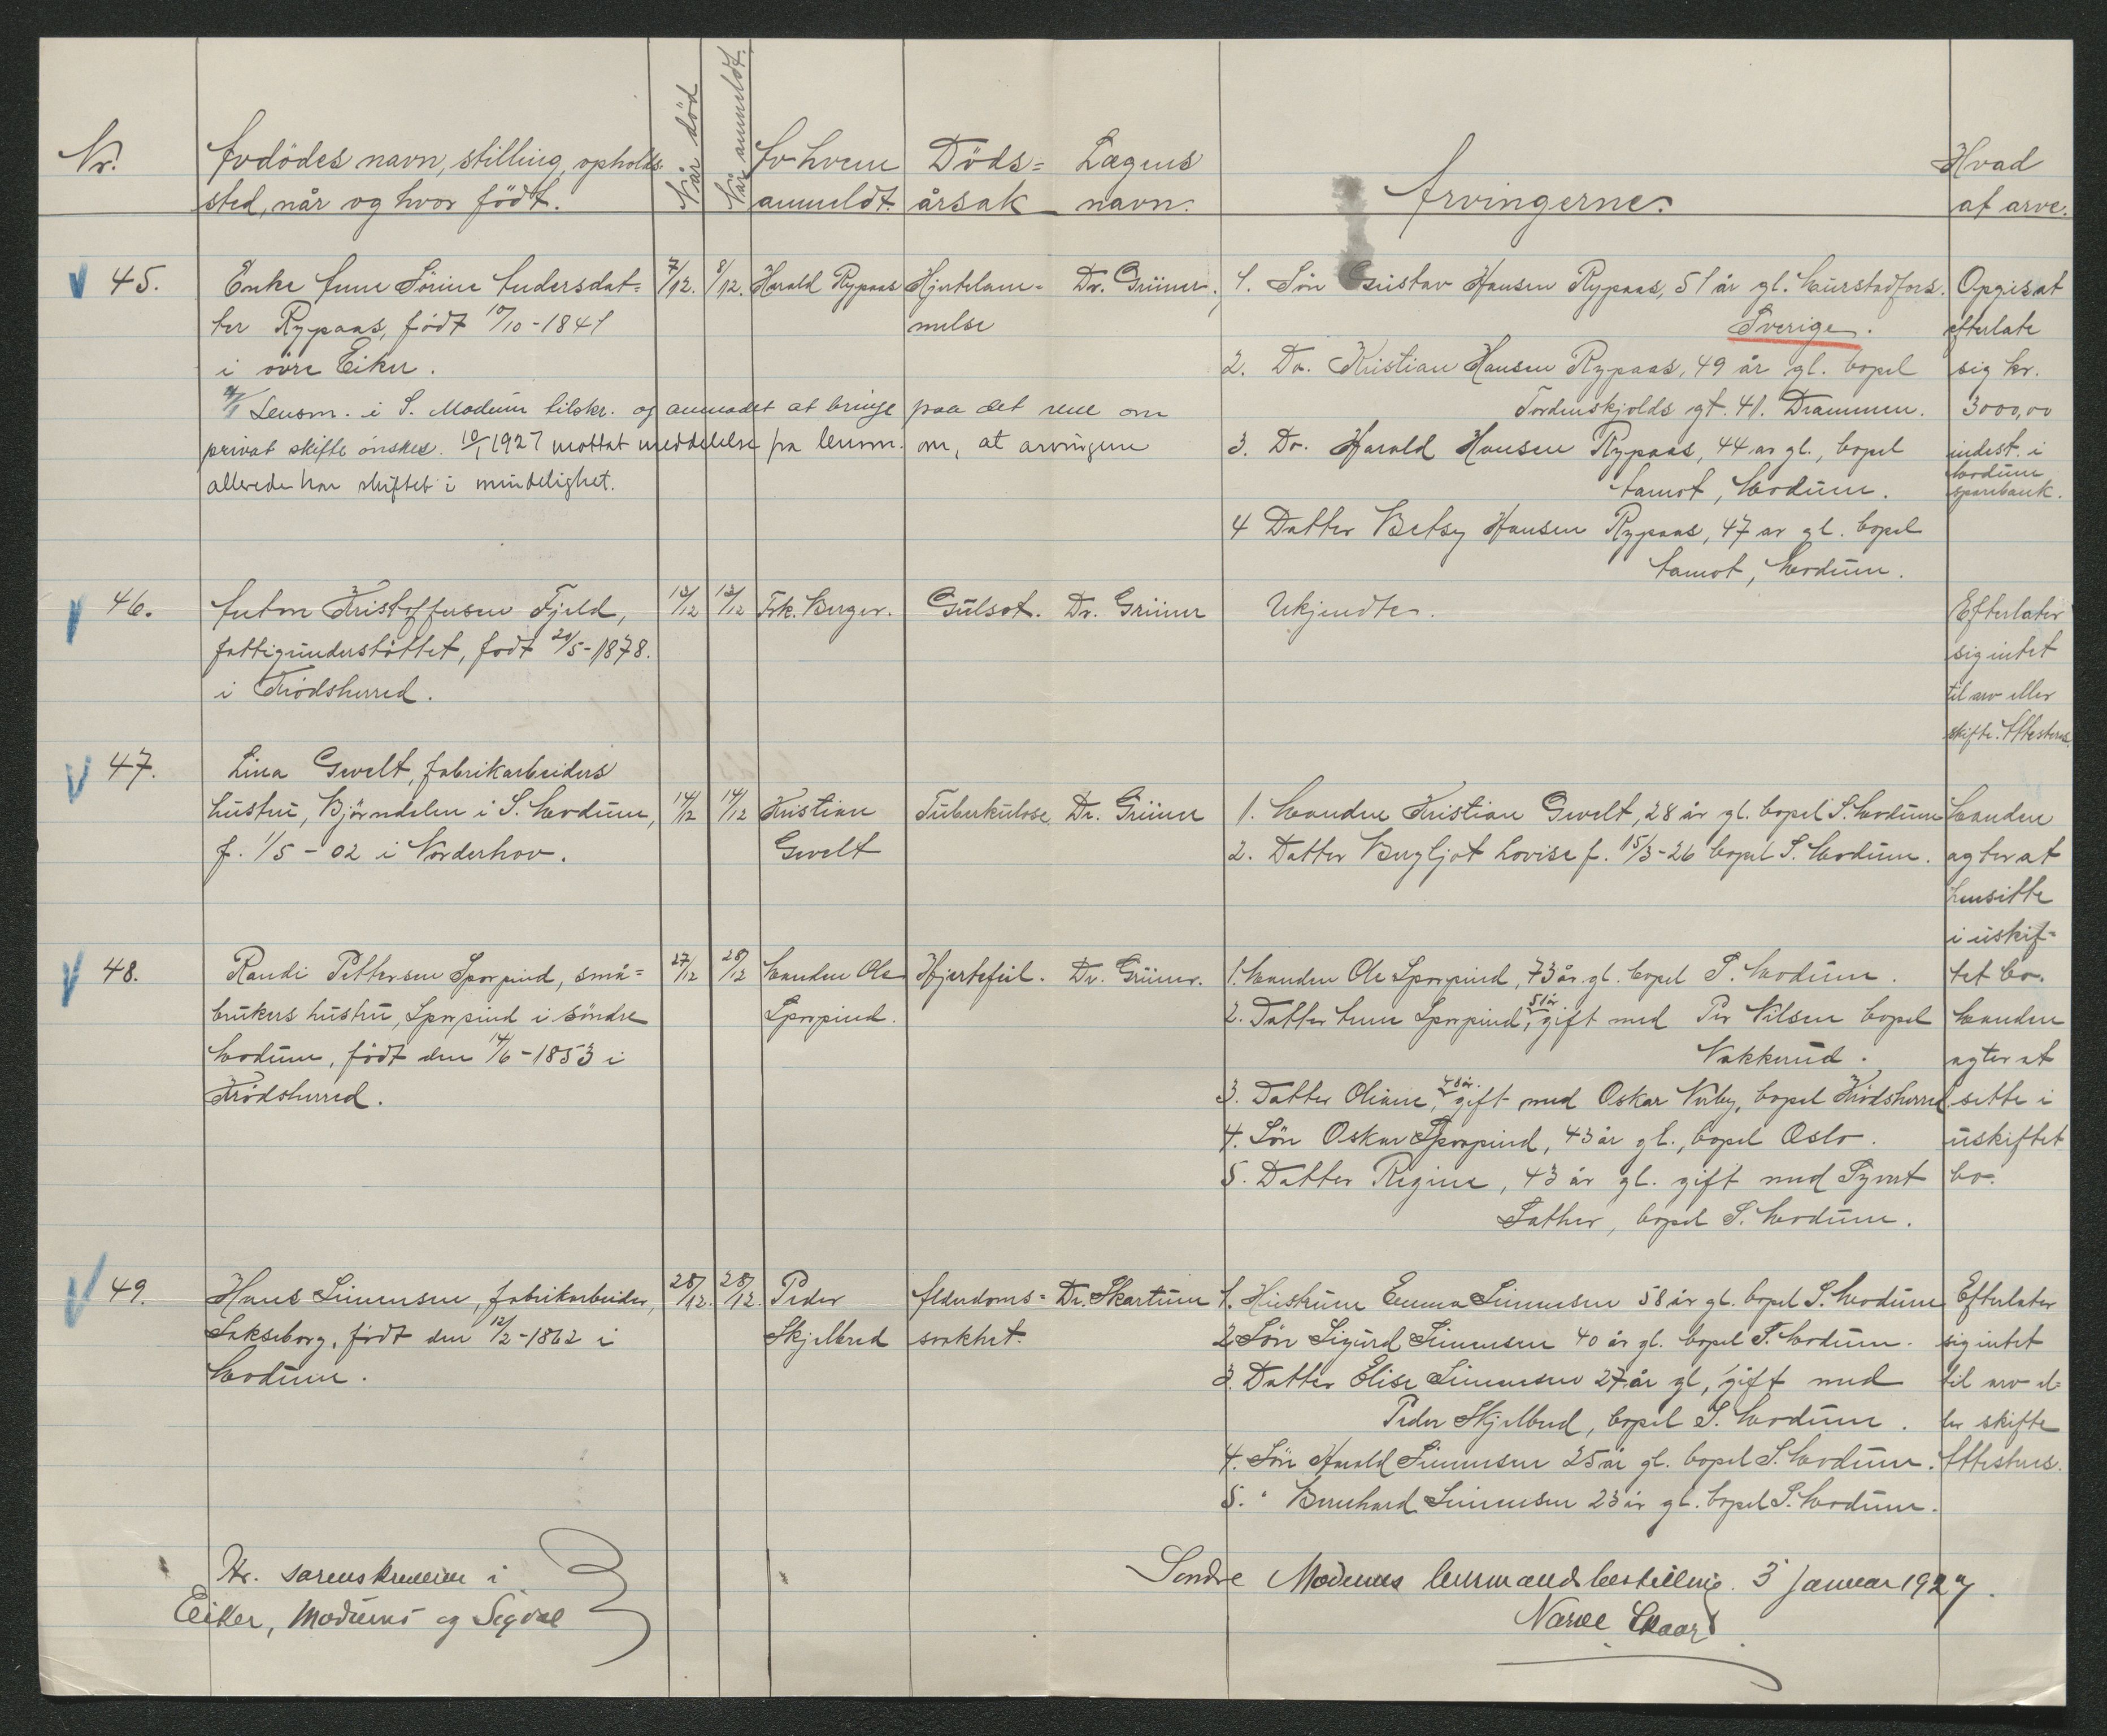 Nr.
Avdödes navn, stilling, opholds-
sted, når og hvor född.
Når död
Når anmeldt.
Av hvem
anmeldt.
Döds=
årsak
Lægens
navn.
Arvingerne.
Hvad
af arve.
45.
Enke Anne Sörine Andersdat=
ter Rypaas, född 10/10-1841
i övre Eiker.
7/12.
8/12.
Harald Rypaas
Hjertelam-
melse
Dr. Grüner.
1. Sön Gustav Hansen Rypaas, 51 år gl.
Sverige.
2. Do. Kristian Hansen Rypaas, 49 år gl. bopel
Tordenskjolds gt. 41. Drammen.
3. Do. Harald Hansen Rypaas, 44 år gl., bopel
Åmot, Modum.
4 Datter Betsy Hansen Rypaas, 47 år gl. bopel
Åmot, Modum.
Opgis at
efterlate
sig kr.
3000,00
indest. i
Modum
sparebank.
Lensm. i S. Modum tilskr. og anmodet at bringe paa det rene om
privat skifte önskes. 10/1 1927 mottat meddelelse fra lensm. om, at arvingene
allerede har skiftet i mindelighet.
46.
Anton Kristoffersen Fjeld,
fattigunderstöttet, född 20/5-1878.
i Krödsherred.
12/12
13/12
Frk. Berger.
Gulsot.
Dr. Grüner
Ukjendte.
Efterlater
sig intet
til arv eller
skifte. Attesteres.
47.
Lina Gevelt, fabrikarbeiders
hustru, Björndalen i S. Modum,
f. 1/5-02 i Norderhov.
14/12
14/12
Kristian
Gevelt
Tuberkulose
Dr. Grüner
1. Manden Kristian Gevelt, 28 år gl. bopel S. Modum
2. Datter Bergljot Lovise f. 15/3-26 bopel S. Modum.
Manden
agter at
hensitte
i uskif=
tet bo.
48.
Randi Pettersen Sporpind, små=
brukers hustru, Sporpind i söndre
Modum, född den 14/6-1853 i
Krödsherred.
27/12
28/12
Manden Ole
Sporpind.
Hjertefeil.
Dr. Grüner.
1. Manden Ole Sporpind, 73 år gl. bopel S. Modum.
2. Datter Anne Sporpind, 51 år, gift med Per Nilsen bopel
Nakkerud.
3. Datter Oline, 48 år. gift med Oskar Verby, bopel Krödsherred
4. Sön Oskar Sporpind, 43 år gl., bopel Oslo.
5. Datter Regine, 43 år gl. gift med Syvert
Sather, bopel S. Modum.
Manden
agter at
sitte i
uskiftet
bo.
49.
Hans Simensen, fabrikarbeider,
Sakseborg, född den 12/2-1862 i
Modum.
28/12.
28/12.
Peder
Skjelbred
Alderdoms=
svakhet.
Dr. Skartum
1. Hustruen Emma Simensen 58 år gl. bopel S. Modum
2. Sön Sigurd Simensen 40 år gl. bopel S. Modum.
3. Datter Elise Simensen 27 år gl, gift med
Peder Skjelbred, bopel S. Modum.
4. Sön Harald Simensen 25 år gl. bopel S. Modum.
5. " Bernhard Simensen 23 år gl. bopel S. Modum.
Efterlater
sig intet
til arv el=
ler skifte
Attesteres.
Hr. sorenskriveren i
Eiker, Modums og Sigdal
Söndre Modums lensmandsbestilling. 3 januar 1927.
Narve Skaar